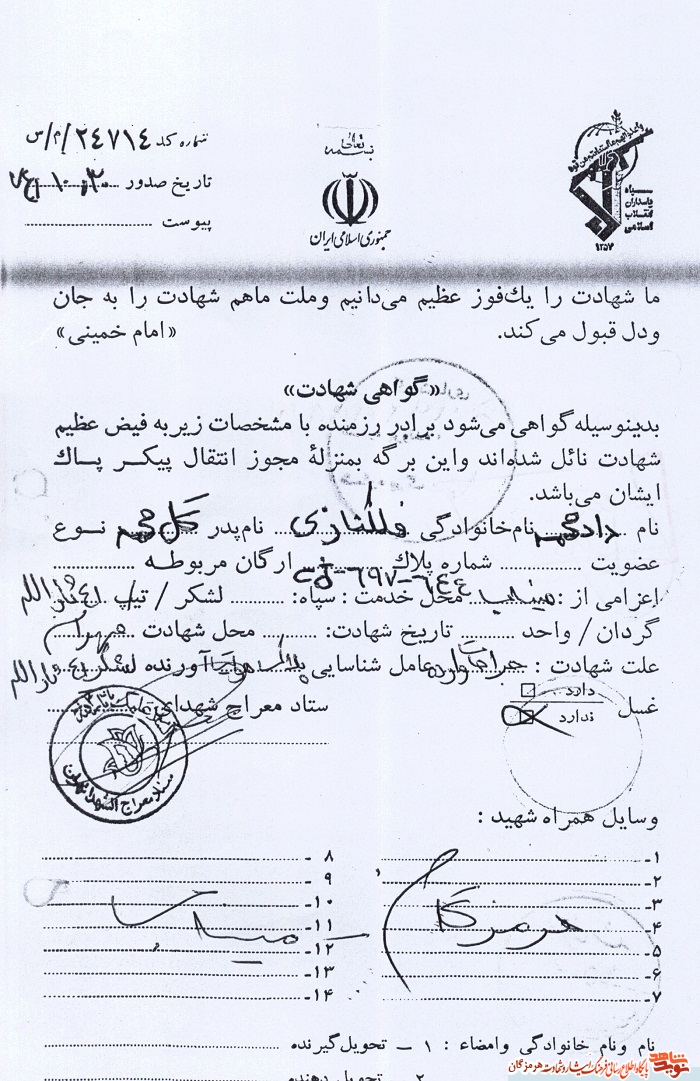 بسمه تعالی
جمهوری اسلامی ایران
سپاه
پاسداران
انقلاب
اسلامی
۱۳۵۷
شماره کد ۲۴۷۱۴/م/س
تاریخ صدور
پیوست
ما شهادت را یك فوز عظیم می‌دانیم وملت ماهم شهادت را به جان
ودل قبول می‌کند. «امام خمینی»
«گواهی شهادت»
بدینوسیله گواهی می‌شود برادر رزمنده با مشخصات زیر به فیض عظیم
شهادت نائل شده‌اند واین برگه بمنزلهٔ مجوز انتقال پیکر پاك
ایشان می‌باشد.
نام دادمحمد نام‌خانوادگی نام‌پدر گل محمد نوع
عضویت شماره پلاك ارگان مربوطه
اعزامی از : میناب محل خدمت : سپاه: لشکر / تیپ ثارالله
گردان / واحد تاریخ شهادت: محل شهادت مهران
علت شهادت : عامل شناسایی پلاک آورنده لشگر ثارالله
غسل دارد
ندارد
ستاد معراج شهدای
ستاد معراج الشهدا تهران
وسایل همراه شهید :
۱-
۲-
۳-
۴-
۵-
۶-
۷-
۸-
۹-
۱۰-
۱۱-
۱۲-
۱۳-
۱۴-
هرمزگان - میناب
نام ونام خانوادگی وامضاء : ۱ – تحویل‌گیرنده
۲ تحویل دهنده
نوید شاهد
پایگاه اطلاع رسانی فرهنگ ایثار و شهادت هرمزگان